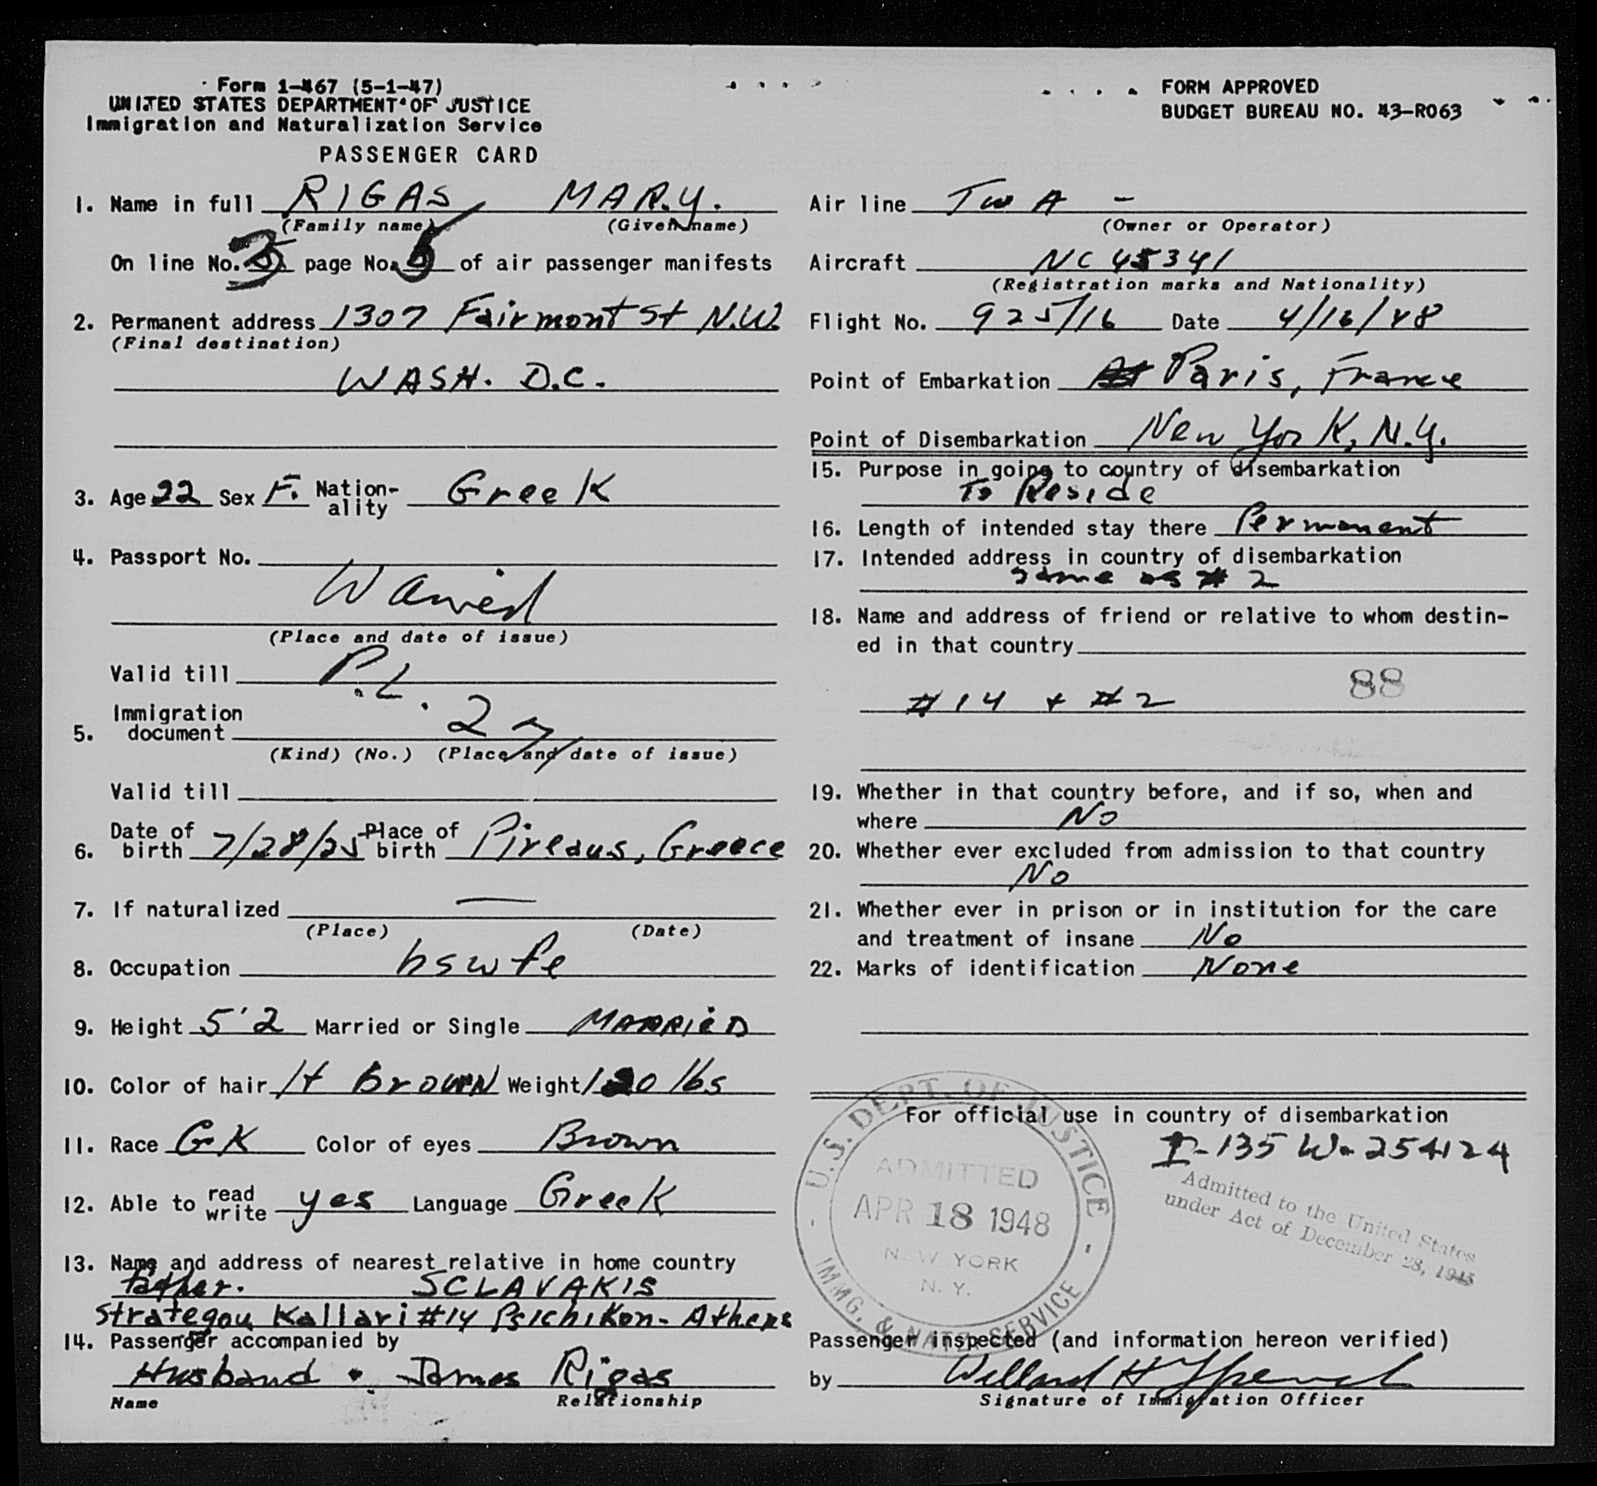 Form 1-467 (5-1-47)
UNITED STATES DEPARTMENT OF JUSTICE
Immigration and Naturalization Service
PASSENGER CARD
FORM APPROVED
BUDGET BUREAU NO. 43-R063
1. Name in full RIGAS, MARY.
(Family name) (Given name)
On line No. 3 page No. 5 of air passenger manifests
2. Permanent address 1307 Fairmont St N.W.
(Final destination)
WASH. D.C.
3. Age 22 Sex F. Nation-ality Greek
4. Passport No.
Waived
(Place and date of issue)
Valid till P.L.
5. Immigration document 27
(Kind) (No.) (Place and date of issue)
Valid till
6. Date of birth 7/28/25 Place of birth Pireaus, Greece
7. If naturalized —
(Place) (Date)
8. Occupation hswfe
9. Height 5'2 Married or Single MARRIED
10. Color of hair lt Brown Weight 120 lbs
11. Race GK Color of eyes Brown
12. Able to read write yes Language Greek
13. Name and address of nearest relative in home country
Father. SCLAVAKIS
Strategou Kallari #14 Psichikon - Athens
14. Passenger accompanied by
Husband. James Rigas
Name Relationship
Air line TWA -
(Owner or Operator)
Aircraft NC 45341
(Registration marks and Nationality)
Flight No. 925/16 Date 4/16/48
Point of Embarkation Paris, France
Point of Disembarkation New York, N.Y.
15. Purpose in going to country of disembarkation
To Reside
16. Length of intended stay there Permanent
17. Intended address in country of disembarkation
same as #2
18. Name and address of friend or relative to whom destin-
ed in that country
88
#14 + #2
19. Whether in that country before, and if so, when and
where No
20. Whether ever excluded from admission to that country
No
21. Whether ever in prison or in institution for the care
and treatment of insane No
22. Marks of identification None
For official use in country of disembarkation
I-135 W-254124
Admitted to the United States
under Act of December 28, 1945
U.S. DEPT. OF JUSTICE
ADMITTED
APR 18 1948
NEW YORK
N.Y.
IMMG. & NATZ. SERVICE
Passenger inspected (and information hereon verified)
by Willard H
Signature of Immigration Officer